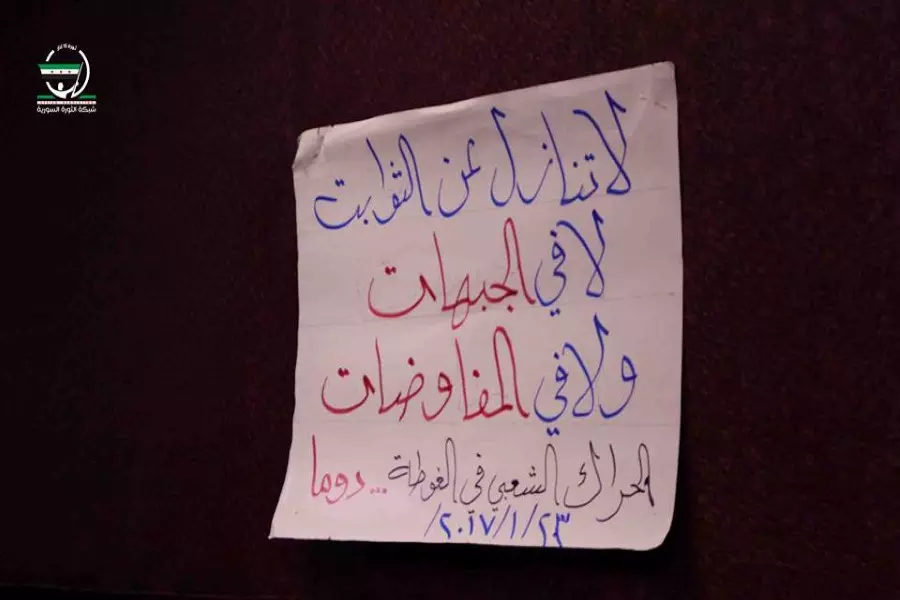 شبكة الثورة السورية
لا تنازل عن الثوابت
لا في الجبهات
ولا في المفاوضات
الحراك الشعبي في الغوطة ... دوما
٢٠١٧/١/٢٣/